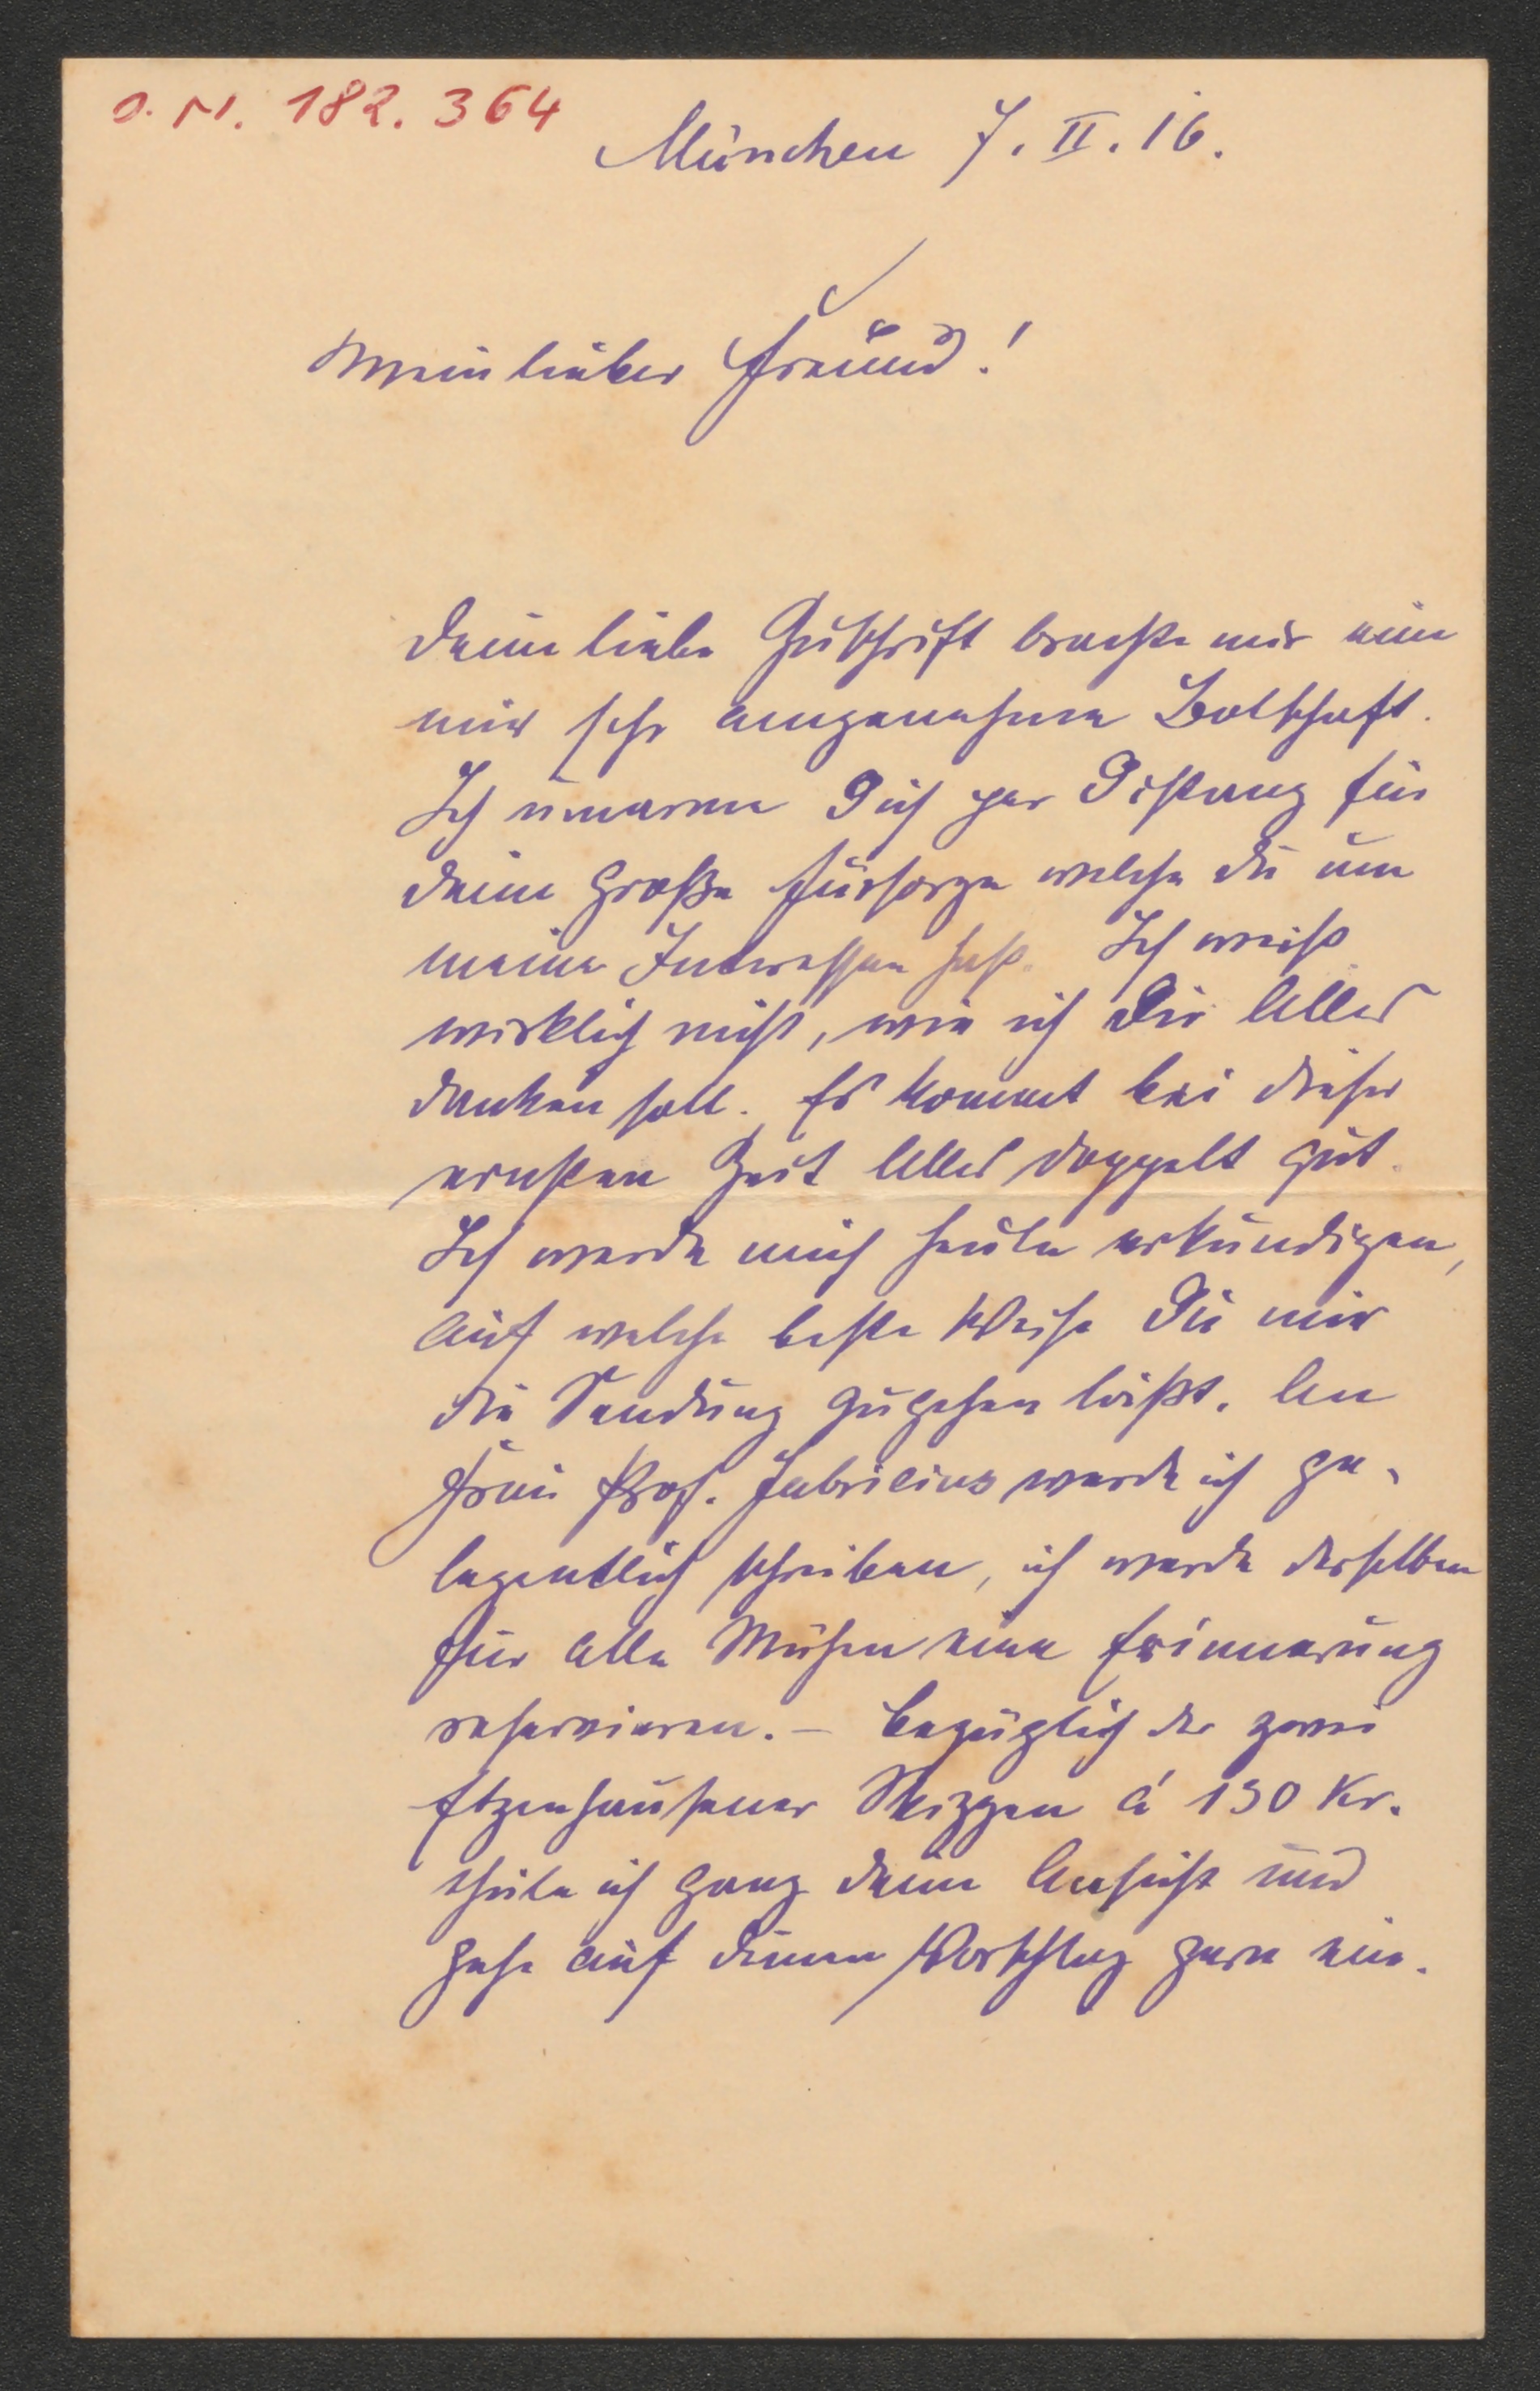 O. N. 182. 364
München 7. II. 16.
Mein lieber Freund!
Deine liebe Zuschrift brachte mir eine
mir sehr angenehme Botschaft.
Ich umarme Dich per Distanz für
deine große Fürsorge welche Du um
meine Interessen hast. Ich weiß
wirklich nicht, wie ich Dir Alles
danken soll. Es kommt bei dieser
ernsten Zeit Alles doppelt gut.
Ich werde mich heute erkundigen,
auf welche beste Weise Du mir
die Sendung zugehen läßt. An
Frau Prof. Fabricius werde ich ge-
legentlich schreiben, ich werde derselben
für alle Mühen eine Erinnerung
reservieren. – Bezüglich der zwei
Etzenhausener Skizzen á 130 Kr.
theile ich ganz deine Ansicht und
gehe auf deinen Vorschlag gern ein.